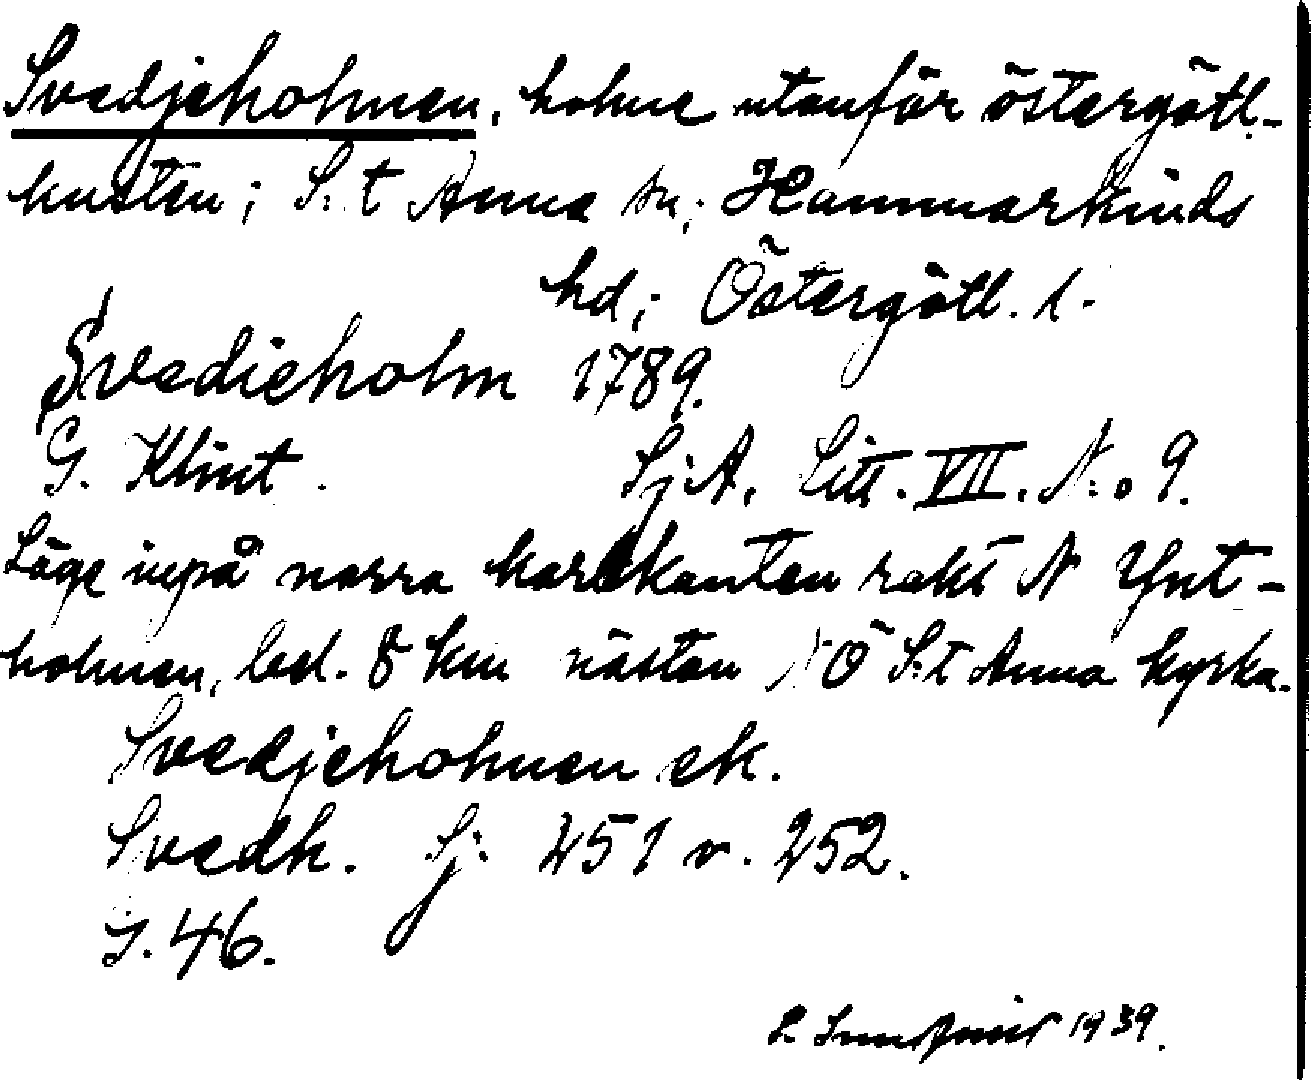 Svedjeholmen, holme utanför östergötl-
kusten; S:t Anna sn; Hammarkinds
hd; Östergötl. l.
Svedieholm 1789.
G. Klint. SjA, Litt. VII. N:o 9.
Läge inpå norra kartkanten rakt N Ynt-
holmen, bel. 8 km nästan NÖ S:t Anna kyrka.
Svedjeholmen ek.
Svedh. Sj. 451 v. 252.
S. 46.
1939.